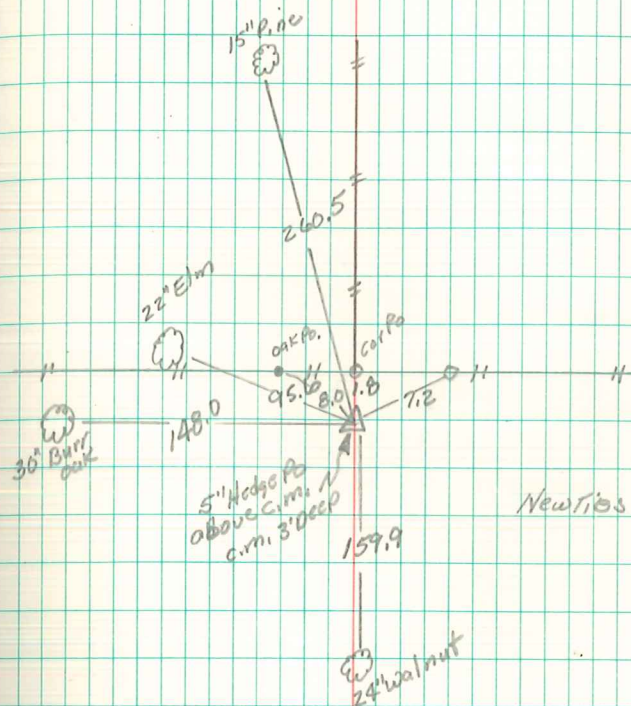 15" Pine
260.5
22" Elm
Oak Po.
Cor Po
95.6
8.0
1.8
7.2
148.0
30" Burr
oak
5" Hedge Po
above c.m.
c.m. 3' Deep
New Ties
159.9
24" walnut